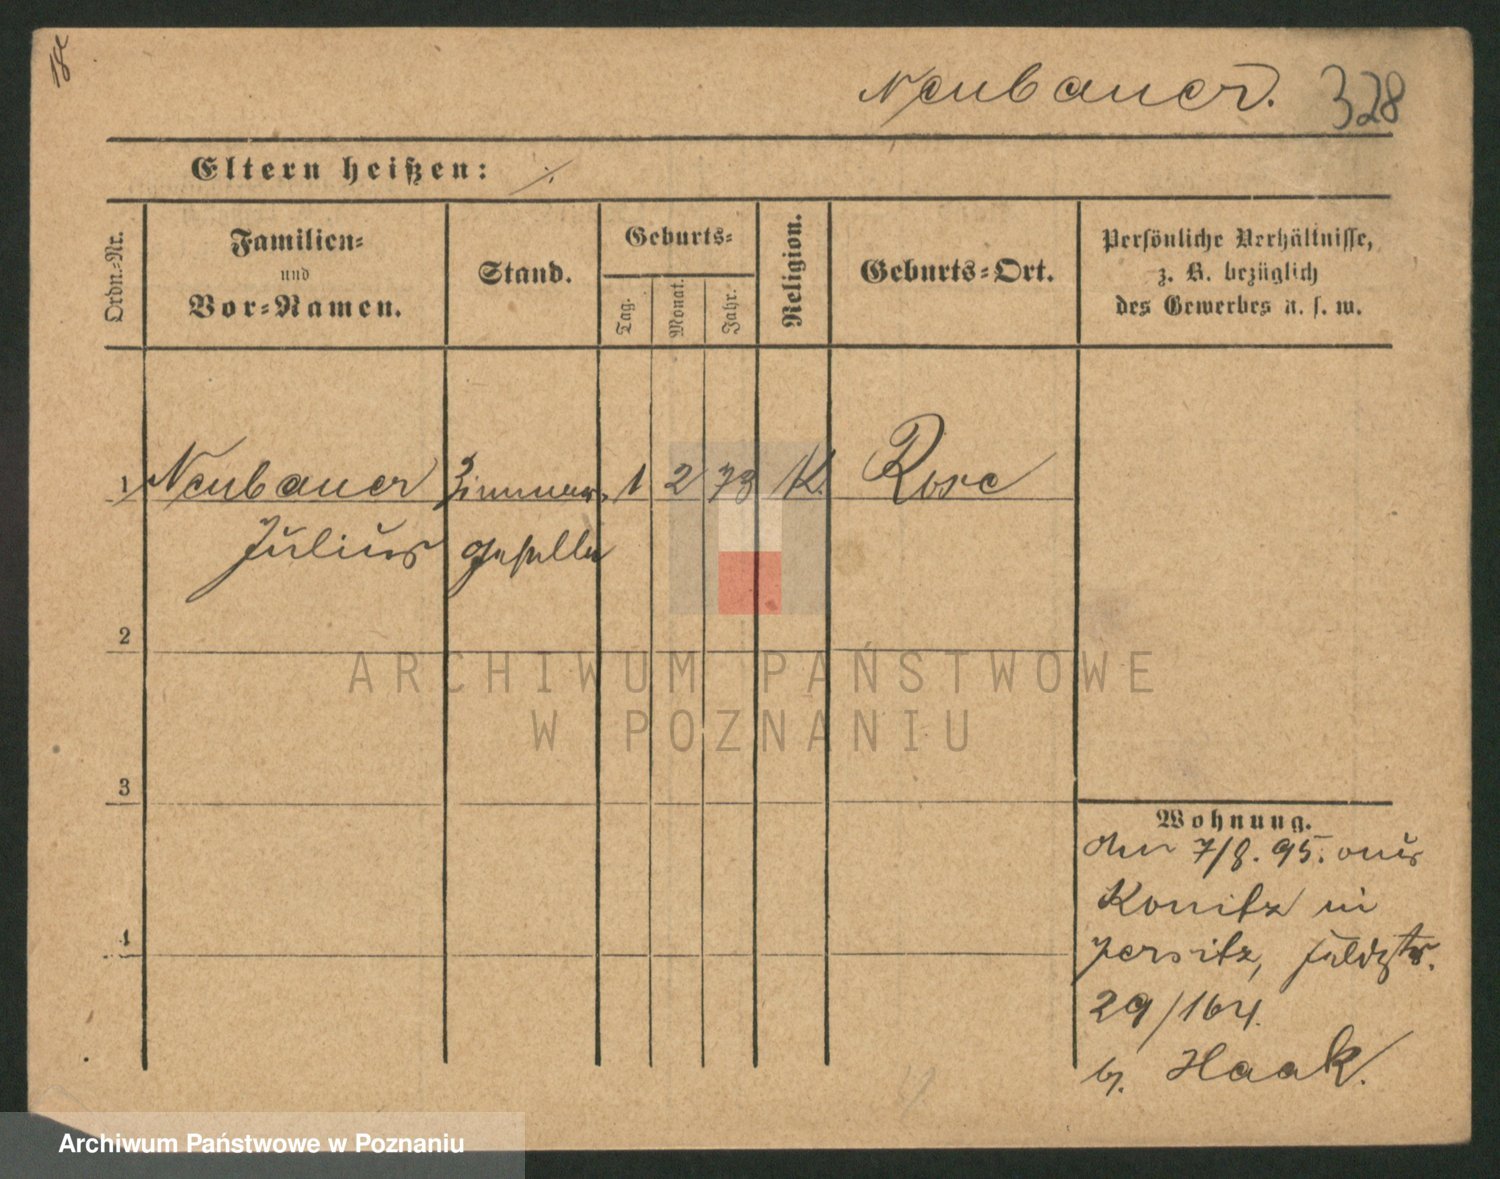 18
Neubauer. 328
Eltern heißen: ./.
Ordn.-Nr.
Familien-
und
Vor-Namen.
Stand.
Geburts-
Tag.
Monat.
Jahr.
Religion.
Geburts-Ort.
Persönliche Verhältnisse,
z. B. bezüglich
des Gewerbes u. s. w.
1 Neubauer Zimmer- 1 2 73 K. Rose
Julius geselle
2
3
4
Wohnung.
den 7/8. 95. aus
Konitz in
Jersitz, Feldstr.
29/164.
b. Haak.
ARCHIWUM PAŃSTWOWE
W POZNANIU
Archiwum Państwowe w Poznaniu